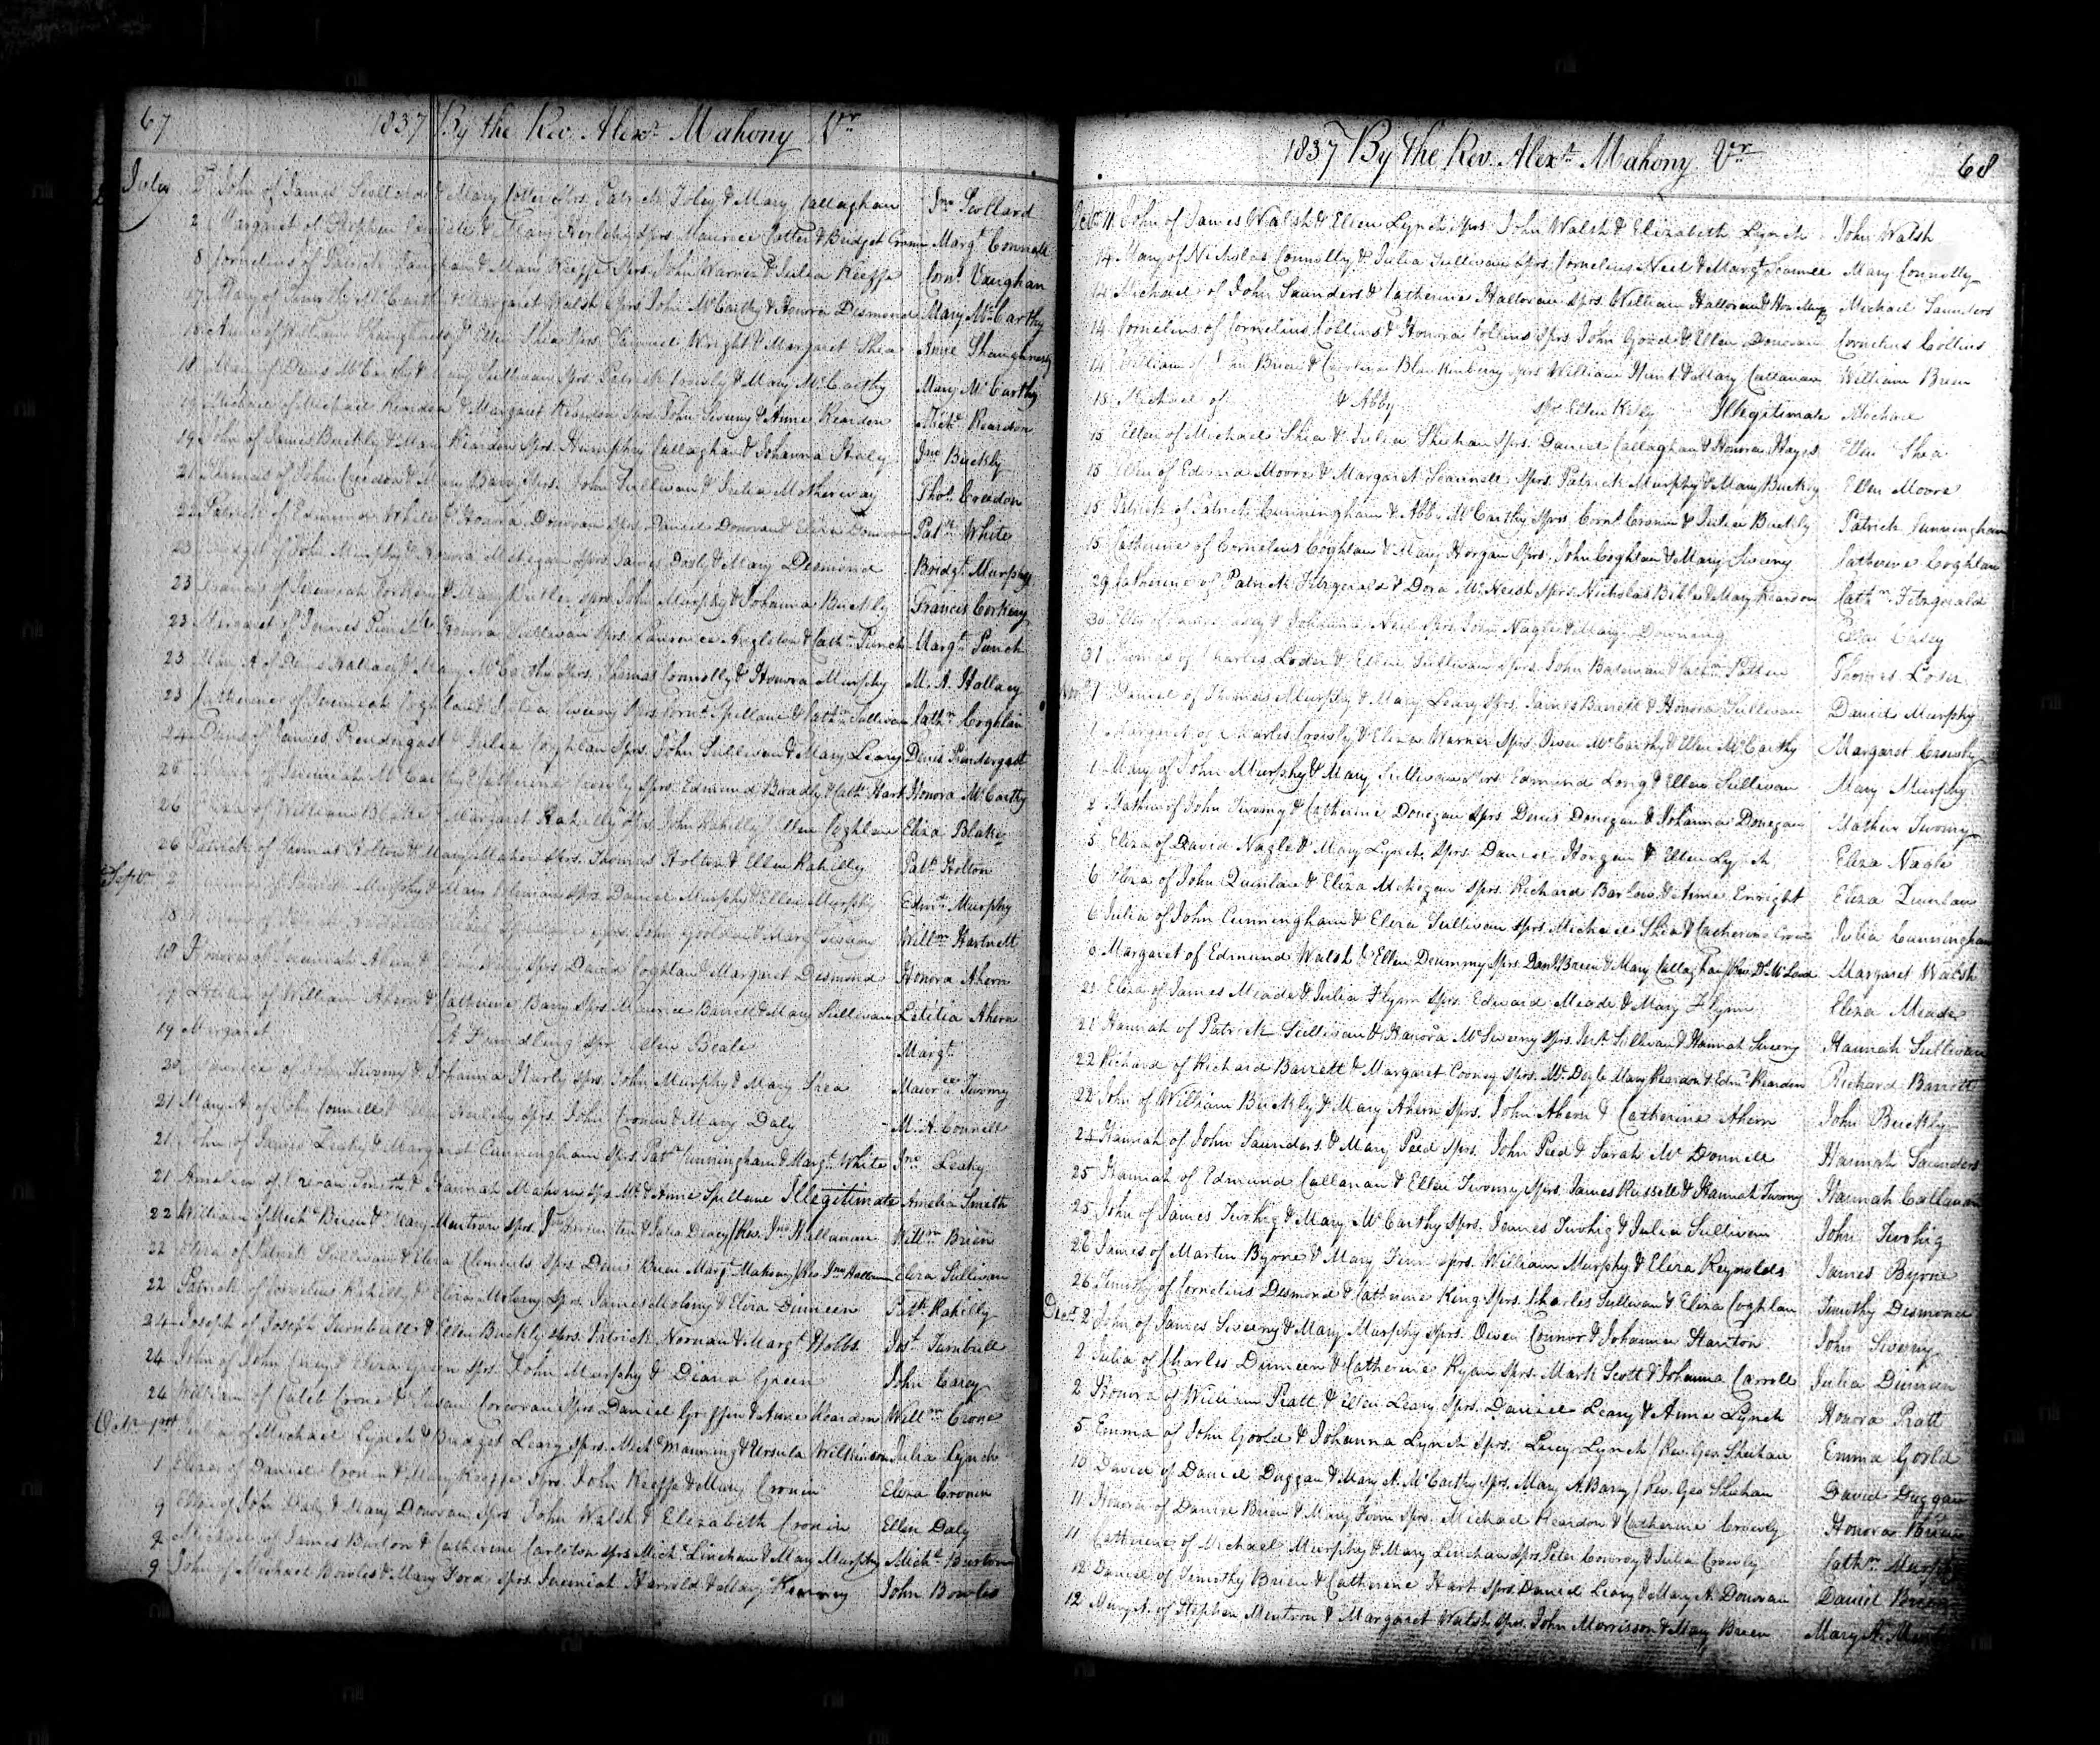 67 1837 By the Rev. Alexr. Mahony Vr
July 2 John of James Scollard & Mary Cotter Sprs. Patrick Foley & Mary Callaghan Jno Scollard
2 Margaret of Stephen & Mary Sprs. Maurice Cotter & Bridget Cronin Margt. Connell
8 Cornelius of Patrick Vaughan & Mary Keeffe Sprs. John Warner & Julia Keeffe Corns. Vaughan
17 Mary of Timothy McCarthy & Margaret Walsh Sprs. John McCarthy & Honora Desmond Mary McCarthy
18 Anne of William Shaughnessy & Ellen Shea Sprs. Samuel Wright & Margaret Shea Anne Shaughnessy
18 Mary of Denis McCarthy & Mary Sullivan Sprs. Patrick Crowly & Mary McCarthy Mary McCarthy
19 Michael of Michael Reardon & Margaret Reardon Sprs. John Sweeny & Anne Reardon Michl. Reardon
19 John of James Buckly & Mary Reardon Sprs. Humphry Callaghan & Johanna Healy Jno Buckly
21 Thomas of John Creedon & Mary Barry Sprs. John Sullivan & Julia Motherway Thos. Creedon
22 Patrick of Edmund White & Honora Donovan Sprs. Daniel Donovan & Eliza Donovan Patk. White
23 Bridget of John Murphy & Honora Mehegan Sprs. James & Mary Desmond Bridgt. Murphy
23 Francis of Jeremiah Corkery & Mary Butler Sprs. John Murphy & Johanna Buckly Francis Corkery
23 Margaret of James Punch & Honora Sullivan Sprs. Laurence Angleton & Cathn. Punch Margt. Punch
23 Mary A. of Denis Hallacy & Mary McCarthy Sprs. Thomas Connolly & Honora Murphy M. A. Hallacy
23 Catherine of Jeremiah Coghlan & Julia Sweeny Sprs. Corns. Spillane & Cathn. Sullivan Cathn. Coghlan
24 Denis of James Prendergast & Julia Coghlan Sprs. John Sullivan & Mary Leary Denis Prendergast
25 Honora of Jeremiah McCarthy & Catherine Crowly Sprs. Edmund Bradly & Cath. Hart Honora McCarthy
26 Eliza of William Blake & Margaret Rahilly Sprs. John Rahilly & Ellen Coghlan Eliza Blake
26 Patrick of James Holton & Mary Mahon Sprs. Thomas Holton & Ellen Rahilly Patk. Holton
Septr. 2 of Patrick Murphy & Mary Sprs. Daniel Murphy & Ellen Murphy Edmd. Murphy
18 Sprs. John & Margt. Willm. Hartnett
18 Honora of Jeremiah Ahern & Sprs. David Coghlan & Margaret Desmond Honora Ahern
19 Letitia of William Ahern & Catherine Barry Sprs. Maurice Barrett & Mary Sullivan Letitia Ahern
19 Margaret A Foundling Spr. Ellen Beale Margt.
20 Maurice of John Twomy & Johanna Hurly Sprs. John Murphy & Mary Shea Maurce Twomy
21 Mary A. of John Connell & Sprs. John Cronin & Mary Daly M. A. Connell
21 John of David Leahy & Margaret Cunningham Sprs. Patk. Cunningham & Margt. White Jno Leahy
21 Amelia of Smith & Hannah Mahony Sprs. Mr. & Anne Spillane Illegitimate Amelia Smith
22 William of Michl. Brien & Mary Mintron Sprs. & Julia Deacy / Rev. Jno Hallanan Willm. Brien
22 Eliza of Patrick Sullivan & Eliza Clements Sprs. Denis Brien Margt. Mahony / Rev. Jno Hallanan Eliza Sullivan
22 Patrick of Cornelius Rahilly & Eliza Molony Sprs. James Molony & Eliza Dinneen Patk. Rahilly
24 Joseph of Joseph Turnbull & Ellen Buckly Sprs. Patrick Norman & Margt. Hobbs Jos. Turnbull
24 John of John Carey & Eliza Green Sprs. John Murphy & Diana Green John Carey
24 William of Caleb Crone & Susan Corcoran Sprs. Daniel Griffin & Anne Reardon Willm. Crone
Octr. 1st Julia of Michael Lynch & Bridget Leary Sprs. Michl. Manning & Ursula Wilkinson Julia Lynch
1 Eliza of Daniel Cronin & Mary Keeffe Sprs. John Keeffe & Mary Cronin Eliza Cronin
9 Ellen of John Daly & Mary Donovan Sprs. John Walsh & Elizabeth Cronin Ellen Daly
9 Michael of James Burton & Catherine Carleton Sprs. Michl. Linehan & Mary Murphy Michl. Burton
9 John of Michael Bowles & Mary Ford Sprs. Jeremiah Harrold & Mary Kearney John Bowles
1837 By the Rev. Alexr. Mahony Vr 68
Octr. 11 John of James Walsh & Ellen Lynch Sprs. John Walsh & Elizabeth Lynch John Walsh
14 Mary of Nicholas Connolly & Julia Sullivan Sprs. Cornelius Neil & Margt. Scannell Mary Connolly
14 Michael of John Saunders & Catherine Halloran Sprs. William Halloran & Michael Saunders
14 Cornelius of Cornelius Collins & Honora Collins Sprs. John Goold & Ellen Donovan Cornelius Collins
14 William of John Brien & Caroline Blackenberry Sprs. William Hunt & Mary Callanan William Brien
15 Michael of & Abby Spr. Ellen Kiley Illegitimate Michael
15 Ellen of Michael Shea & Julia Sheehan Sprs. Daniel Callaghan & Honora Hayes Ellen Shea
15 Ellen of Edmund Moore & Margaret Scannell Sprs. Patrick Murphy & Mary Buckly Ellen Moore
15 Patrick of Patrick Cunningham & Abby McCarthy Sprs. Cornl. Cronin & Julia Buckly Patrick Cunningham
15 Catherine of Cornelius Coghlan & Mary Horgan Sprs. John Coghlan & Mary Sweeny Catherine Coghlan
29 Catherine of Patrick Fitzgerald & Dora Sprs. Nicholas & Mary Reardon Cathn. Fitzgerald
30 Ellen of Casey & Johanna Neil Sprs. John Nagle & Mary Downing Ellen Casey
31 Thomas of Charles Loder & Ellen Sullivan Sprs. John Bateman & Thomas Loder
Novr. 1 Daniel of Thomas Murphy & Mary Leary Sprs. James Barrett & Honora Sullivan Daniel Murphy
1 Margaret of Charles Crowly & Eliza Warner Sprs. Owen McCarthy & Ellen McCarthy Margaret Crowly
1 Mary of John Murphy & Mary Sullivan Sprs. Edmund Long & Ellen Sullivan Mary Murphy
2 Mathew of John Twomy & Catherine Donegan Sprs. Denis Donegan & Johanna Donegan Mathew Twomy
5 Eliza of David Nagle & Mary Lynch Sprs. Daniel Horgan & Ellen Lynch Eliza Nagle
6 Eliza of John Quinlan & Eliza Mehegan Sprs. Richard Barlow & Anne Enright Eliza Quinlan
6 Julia of John Cunningham & Eliza Sullivan Sprs. Michael Shea & Catherine Julia Cunningham
8 Margaret of Edmund Walsh & Ellen Drummy Sprs. Danl. Brien & Mary Callaghan / Rev. D. Margaret Walsh
21 Eliza of James Meade & Julia Flynn Sprs. Edward Meade & Mary Flynn Eliza Meade
21 Hannah of Patrick Sullivan & Hanora McSweeny Sprs. Sullivan & Hannah Sweeny Hannah Sullivan
22 Richard of Richard Barrett & Margaret Cooney Sprs. Mr. Doyle Mary Reardon & Edmd. Reardon Richard Barrett
22 John of William Buckly & Mary Ahern Sprs. John Ahern & Catherine Ahern John Buckly
24 Hannah of John Saunders & Mary Peed Sprs. John Peed & Sarah McDonnell Hannah Saunders
25 Hannah of Edmund Callanan & Ellen Twomy Sprs. James Russell & Hannah Twomy Hannah Callanan
25 John of James Twohig & Mary McCarthy Sprs. James Twohig & Julia Sullivan John Twohig
26 James of Martin Byrne & Mary Finn Sprs. William Murphy & Eliza Reynolds James Byrne
26 Timothy of Cornelius Desmond & Catherine King Sprs. Charles Sullivan & Eliza Coghlan Timothy Desmond
Decr. 2 John of James Sweeny & Mary Murphy Sprs. Owen Connor & Johanna Stanton John Sweeny
2 Julia of Charles Dinneen & Catherine Ryan Sprs. Mark Scott & Johanna Carroll Julia Dinneen
2 Honora of William Pratt & Ellen Leary Sprs. Daniel Leary & Anne Lynch Honora Pratt
5 Emma of John Goold & Johanna Lynch Sprs. Lucy Lynch / Rev. Geo. Sheehan Emma Goold
10 David of Daniel Duggan & Mary A. McCarthy Sprs. Mary A. Barry / Rev. Geo Sheehan David Duggan
11 Honora of Daniel Brien & Mary Sprs. Michael Reardon & Catherine Crowly Honora Brien
11 Catherine of Michael Murphy & Mary Linehan Sprs. Peter Conroy & Julia Crowly Cathn. Murphy
12 Daniel of Timothy Brien & Catherine Hart Sprs. Daniel Leary & Mary A. Donovan Daniel Brien
12 Mary A. of Stephen Mintron & Margaret Walsh Sprs. John Morrisson & Mary Brien Mary A.